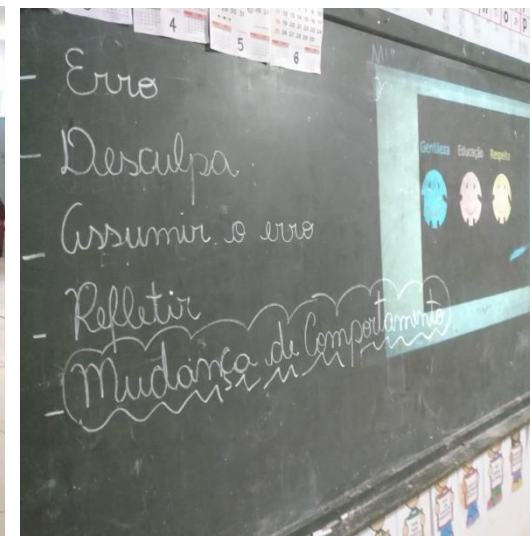 4
5
6
- Erro
- Desculpa
- Assumir o erro
- Refletir
- Mudança de Comportamento
Gentileza Educação Respeito